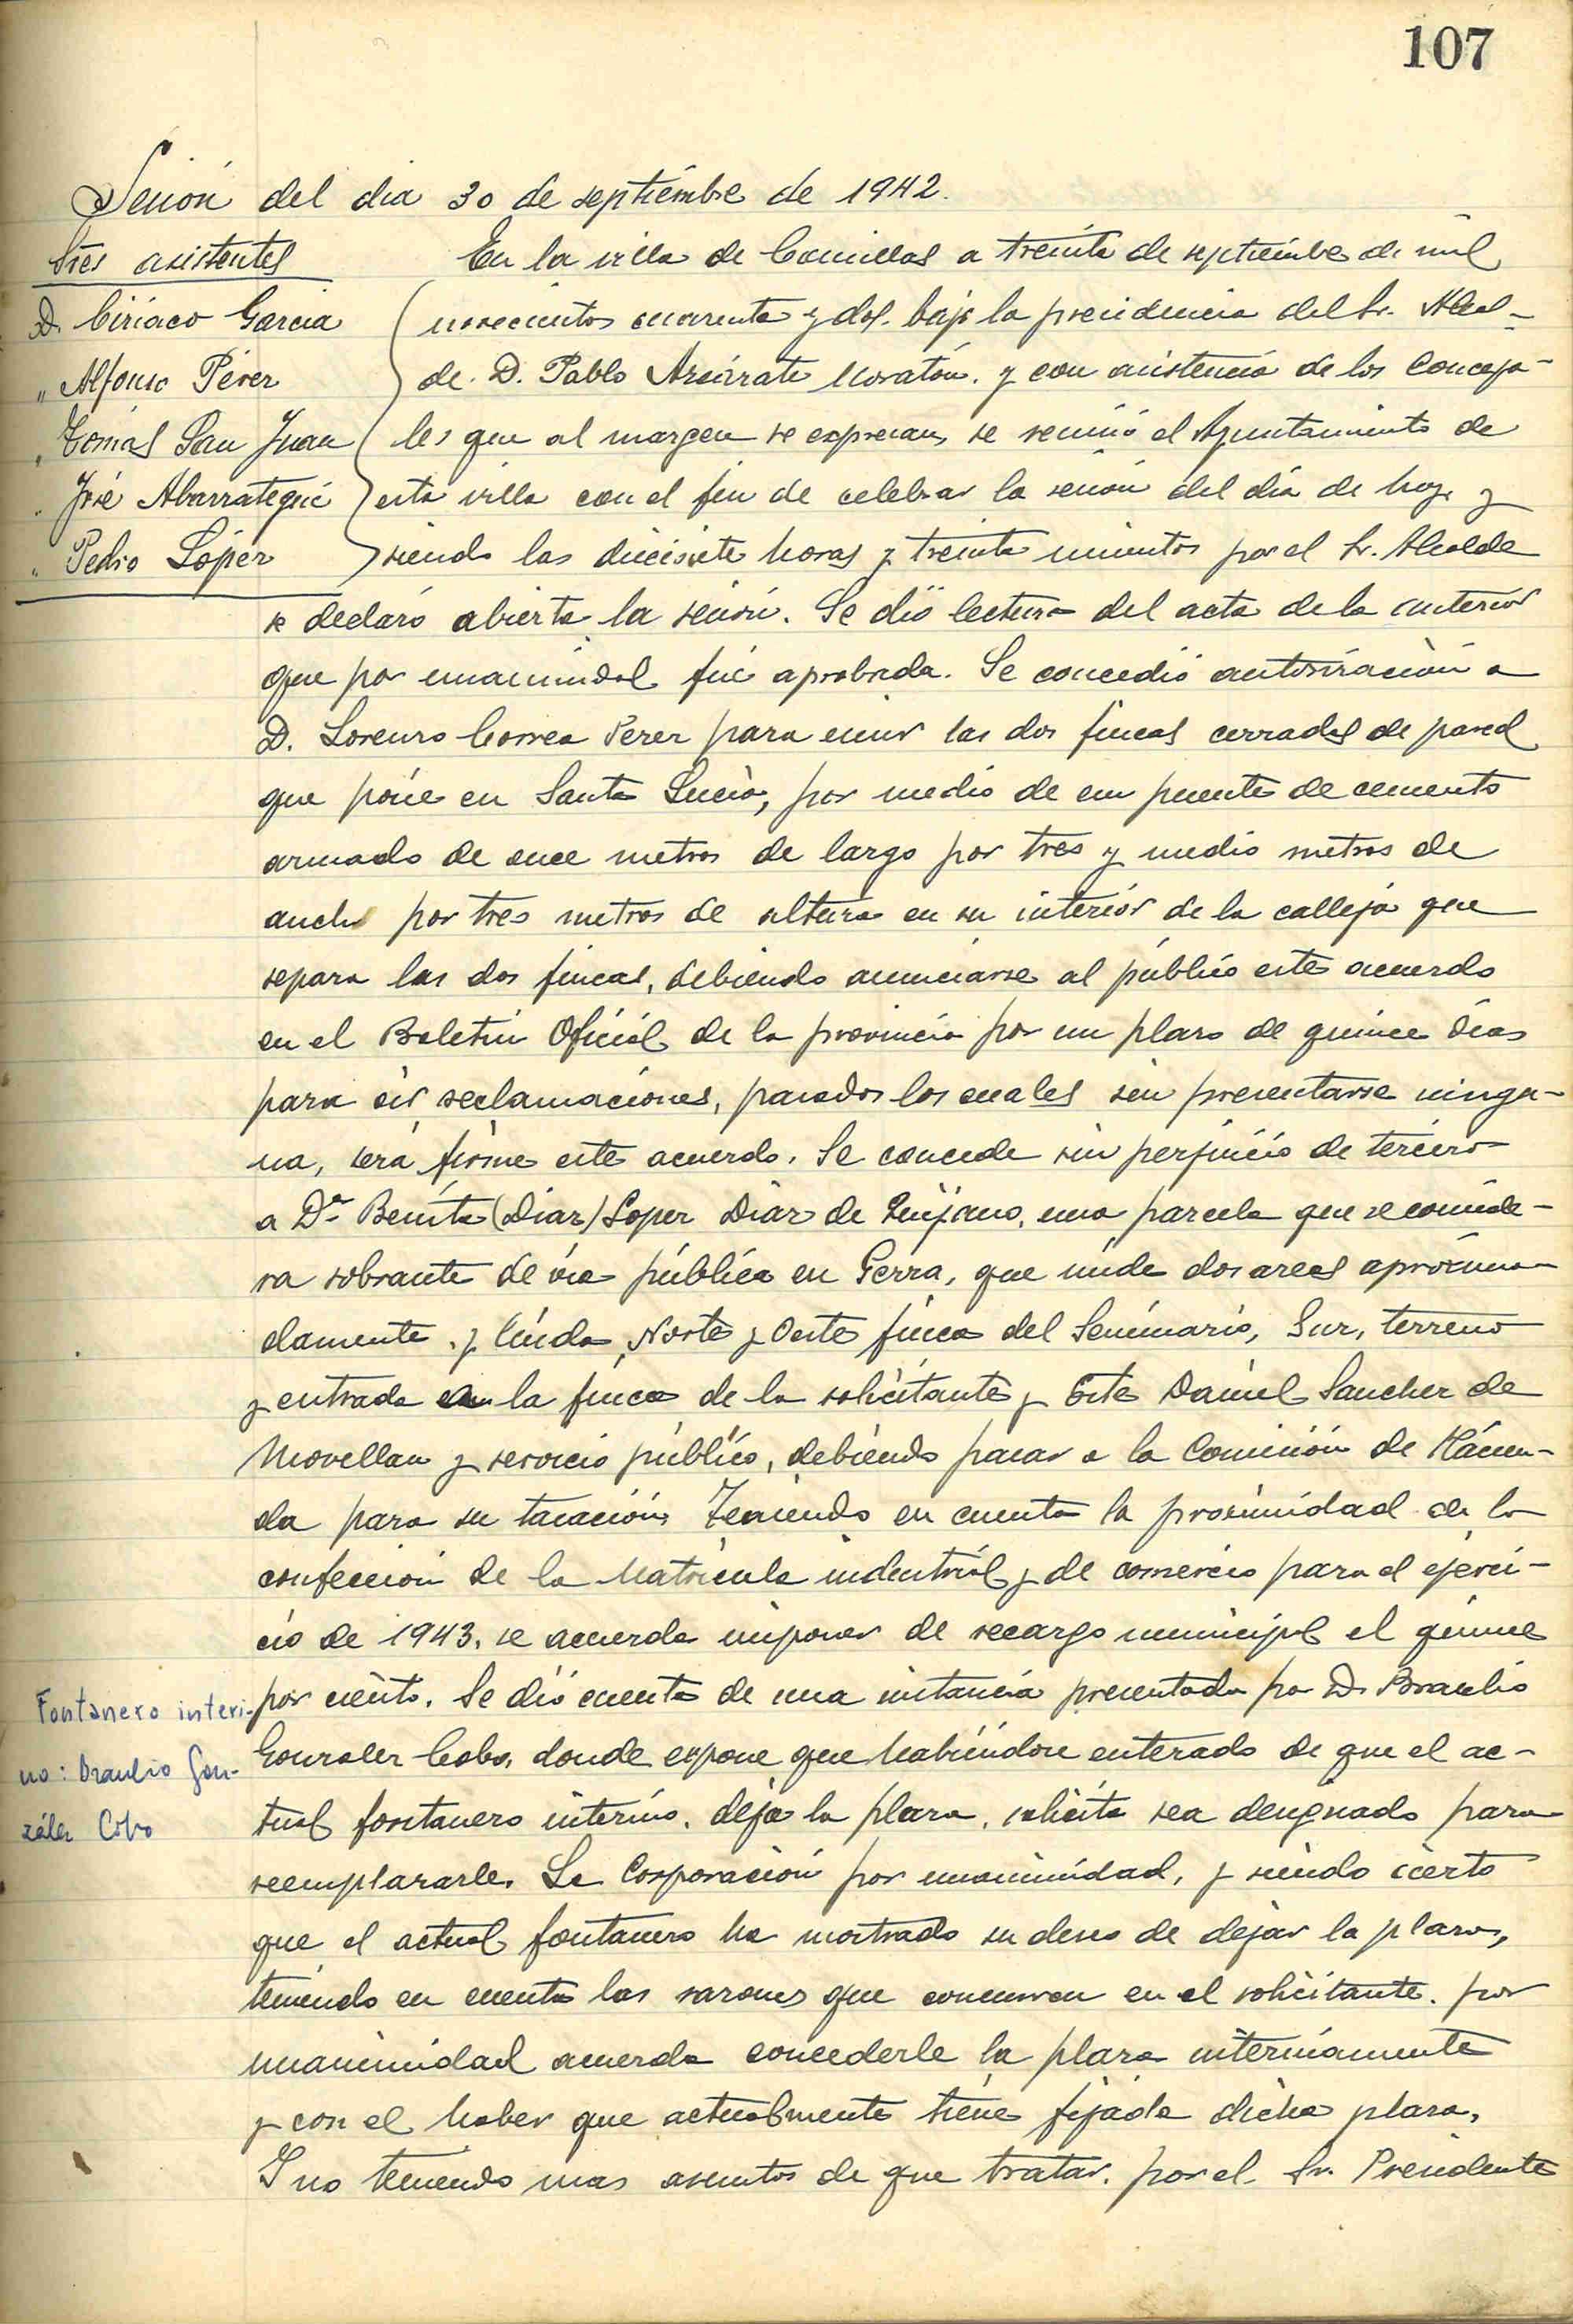 107
Sesión del dia 30 de septiembre de 1942.
Sres asistentes
D. Ciriaco Garcia
" Alfonso Pérez
" Tomás San Juan
" José Abarrategui
" Pedro López
En la villa de Comillas a treinta de septiembre de mil
novecientos cuarenta y dos. bajo la presidencia del Sr. Alcal-
de. D. Pablo Arzárrate Moratón. y con asistencia de los Conceja-
les que al margen se expresan, se reunió el Ayuntamiento de
esta villa con el fin de celebrar la sesión del día de hoy, y
siendo las diecisiete horas y treinta minutos por el Sr. Alcalde
se declaró abierta la sesión. Se dió lectura del acta de la anterior
que por unanimidad fué aprobada. Se concedió autorización a
D. Lorenzo Correa Perez para unir las dos fincas cerradas de pared
que posée en Santa Lucia, por medio de un puente de cemento
armado de once metros de largo por tres y medio metros de
ancho por tres metros de altura en su interior de la calleja que
separa las dos fincas, debiendo anunciarse al público este acuerdo
en el Boletin Oficial de la provincia por un plazo de quince dias
para oir reclamaciones, pasados los cuales sin presentarse ningu-
na, será firme este acuerdo. Se concede sin perjuicio de tercero
a Dª Benita (Diaz) Lopez Diaz de Quijano, una parcela que se conside-
ra sobrante de via pública en Gerra, que mide dos areas aproxima-
damente, y linda, Norte y Oeste finca del Seminario, Sur, terreno
y entrada en la finca de la solicitante y Este Daniel Sanchez de
Movellan y servicio público, debiendo pasar a la Comisión de Hacien-
da para su tasación. Teniendo en cuenta la proximidad de la
confección de la Matricula industrial y de comercio para el ejerci-
cio de 1943, se acuerda imponer de recargo municipal el quince
por ciento. Se dió cuenta de una instancia presentada por D. Braulio
Gonzalez Cobo, donde expone que habiéndose enterado de que el ac-
tual fontanero interino, deja la plaza, solicita sea designado para
reemplazarle. La Corporación por unanimidad, y siendo cierto
que el actual fontanero ha mostrado su deseo de dejar la plaza,
teniendo en cuenta las razones que concurren en el solicitante, por
unanimidad acuerda concederle la plaza interinamente
y con el haber que actualmente tiene fijada dicha plaza.
Y no teniendo mas asuntos de que tratar, por el Sr. Presidente
Fontanero interi-
no: Braulio Gon-
zález Cobo